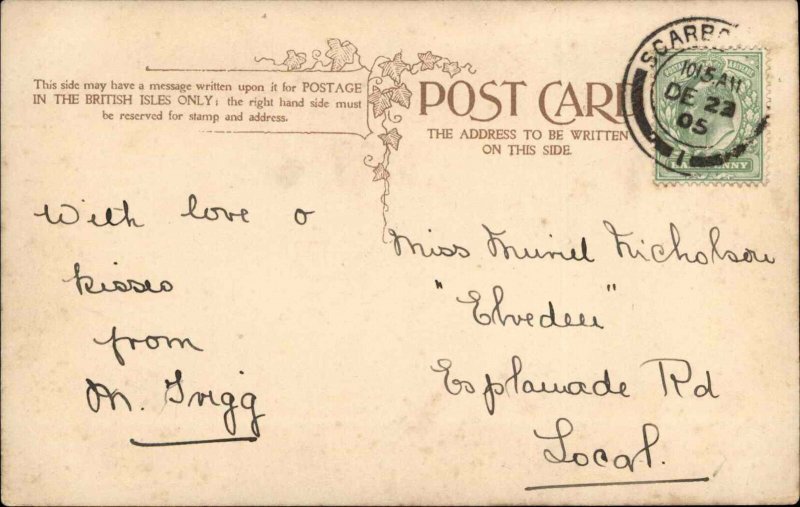 This side may have a message written upon it for POSTAGE
IN THE BRITISH ISLES ONLY; the right hand side must
be reserved for stamp and address.
POST CARD
THE ADDRESS TO BE WRITTEN
ON THIS SIDE.
SCARBO
1015AM
DE 23
05
1
With love &
kisses
from
M. Trigg
Miss Muriel Nicholson
"Elveden"
Esplanade Rd
Local.